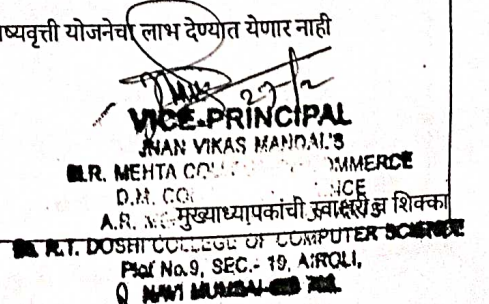 ष्यवृत्ती योजनेचा लाभ देण्यात येणार नाही
VICE-PRINCIPAL
JNAN VIKAS MANDAL'S
R. MEHTA COMMERCE
D.M.
A.R. मुख्याध्यापकांची स्वाक्षरी व शिक्का
R.T. DOSHI COLLEGE OF COMPUTER SCIENCE
Plot No.9, SEC.- 19, AIROLI,
NAVI MUMBAI